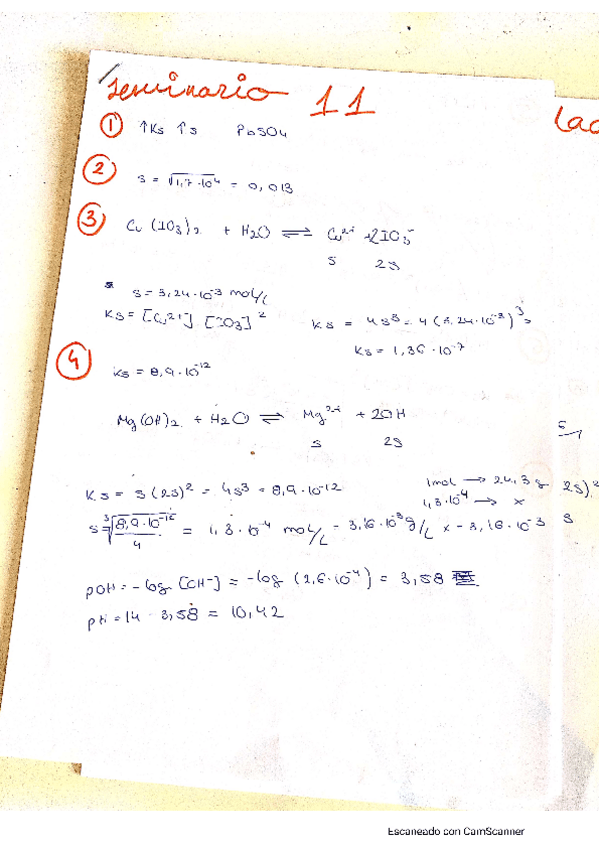 Seminario 11
lac
① ↑Ks ↑s PbSO4
② s = √1,7·10⁻⁴ = 0,013
③ Cu (IO3)2 + H2O ⇌ Cu²⁺ + 2IO3⁻
s 2s
s = 3,24·10⁻³ mol/L
Ks = [Cu²⁺] [IO3]² Ks = 4s³ = 4(3,24·10⁻³)³ =
Ks = 1,36·10⁻⁷
④ Ks = 8,9·10⁻¹²
Mg(OH)2 + H2O ⇌ Mg²⁺ + 2OH
s 2s
Ks = s(2s)² = 4s³ = 8,9·10⁻¹² 1mol → 24,3 g 2s)²
1,3·10⁻⁴ → x
s = ³√8,9·10⁻¹²/4 = 1,3·10⁻⁴ mol/L = 3,16·10⁻³ g/L x = 3,16·10⁻³ s
pOH = -log [OH⁻] = -log (2,6·10⁻⁴) = 3,58
pH = 14 - 3,58 = 10,42
Escaneado con CamScanner